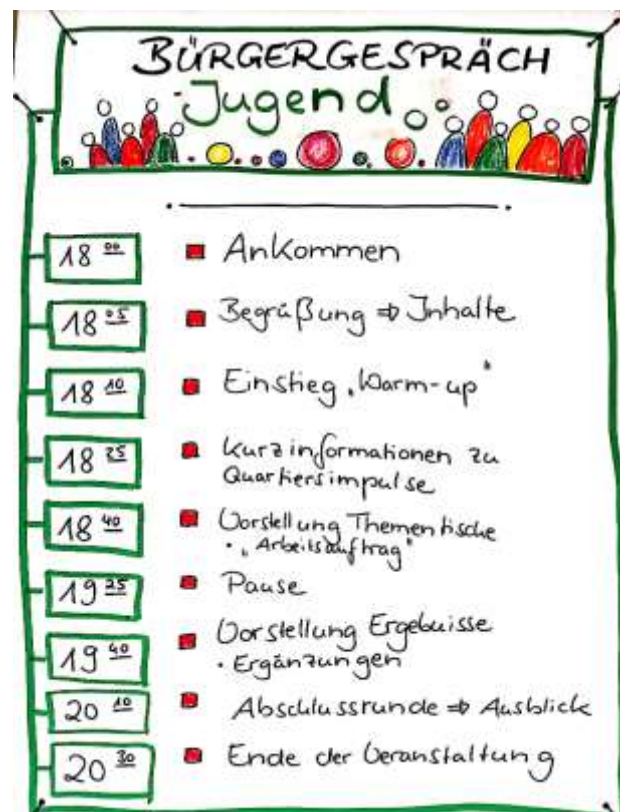 BÜRGERGESPRÄCH
Jugend
18 00 Ankommen
18 05 Begrüßung ⇒ Inhalte
18 10 Einstieg „Warm-up"
18 25 Kurzinformationen zu
Quartiersimpulse
18 40 Vorstellung Thementische
• „Arbeitsauftrag"
19 25 Pause
19 40 Vorstellung Ergebnisse
• Ergänzungen
20 10 Abschlussrunde ⇒ Ausblick
20 30 Ende der Veranstaltung